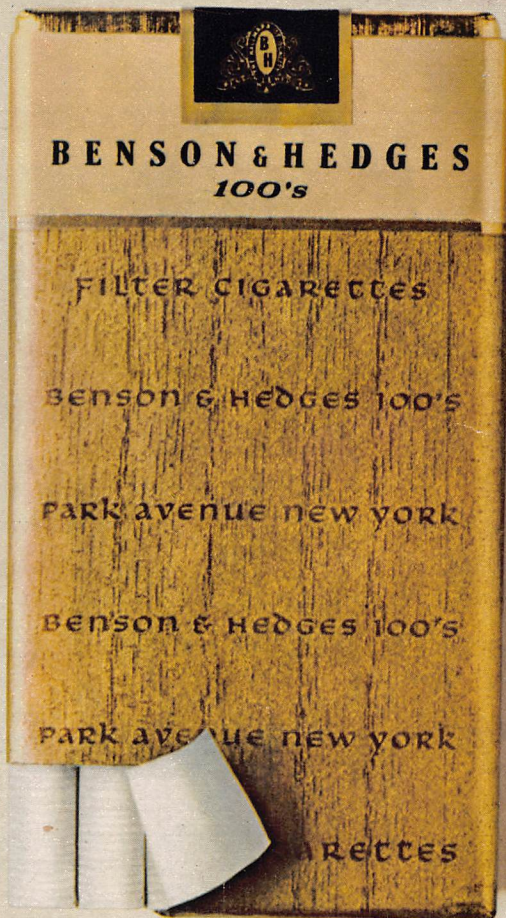 B
H
BENSON & HEDGES
100's
FILTER CIGARETTES
BENSON & HEDGES 100'S
PARK AVENUE NEW YORK
BENSON & HEDGES 100'S
PARK AVENUE NEW YORK
ARETTES